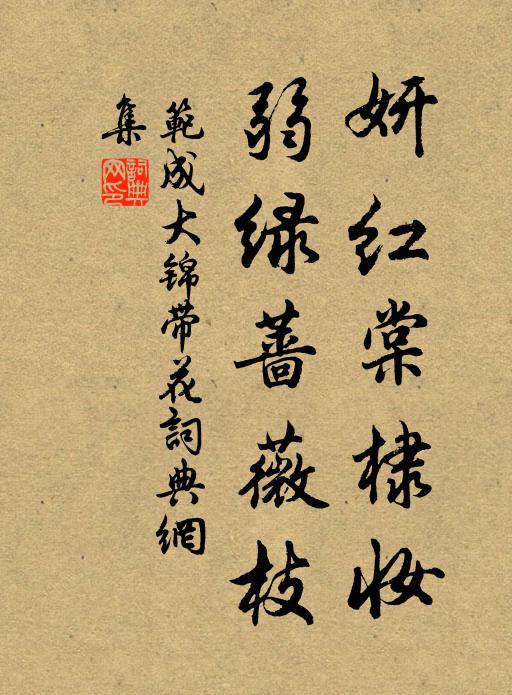 妍红棠棣妆
弱绿蔷薇枝
範成大锦带花詞典網
集
詞典网印